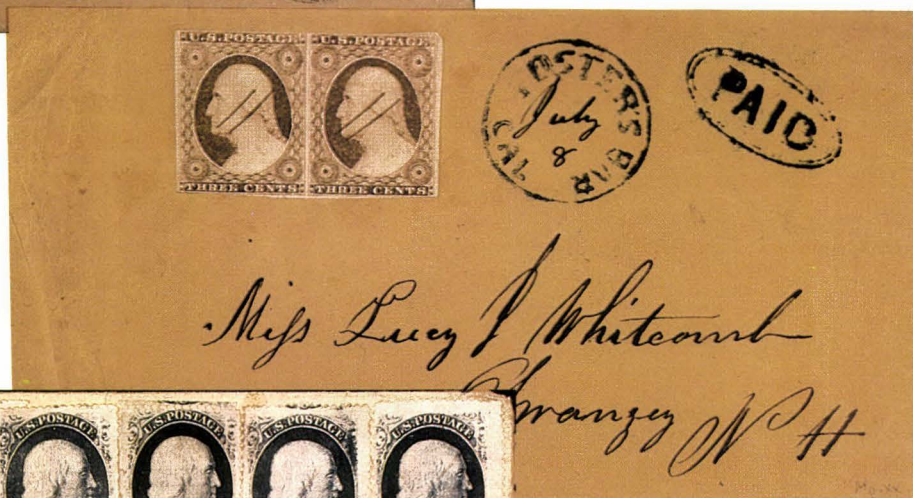 U.S. POSTAGE U.S. POSTAGE
THREE CENTS THREE CENTS
FOSTER'S BAR CAL
July
8
PAID
Miss Lucy J Whitcomb
Swanzey
N H
U.S. POSTAGE U.S. POSTAGE U.S. POSTAGE U.S. POSTAGE